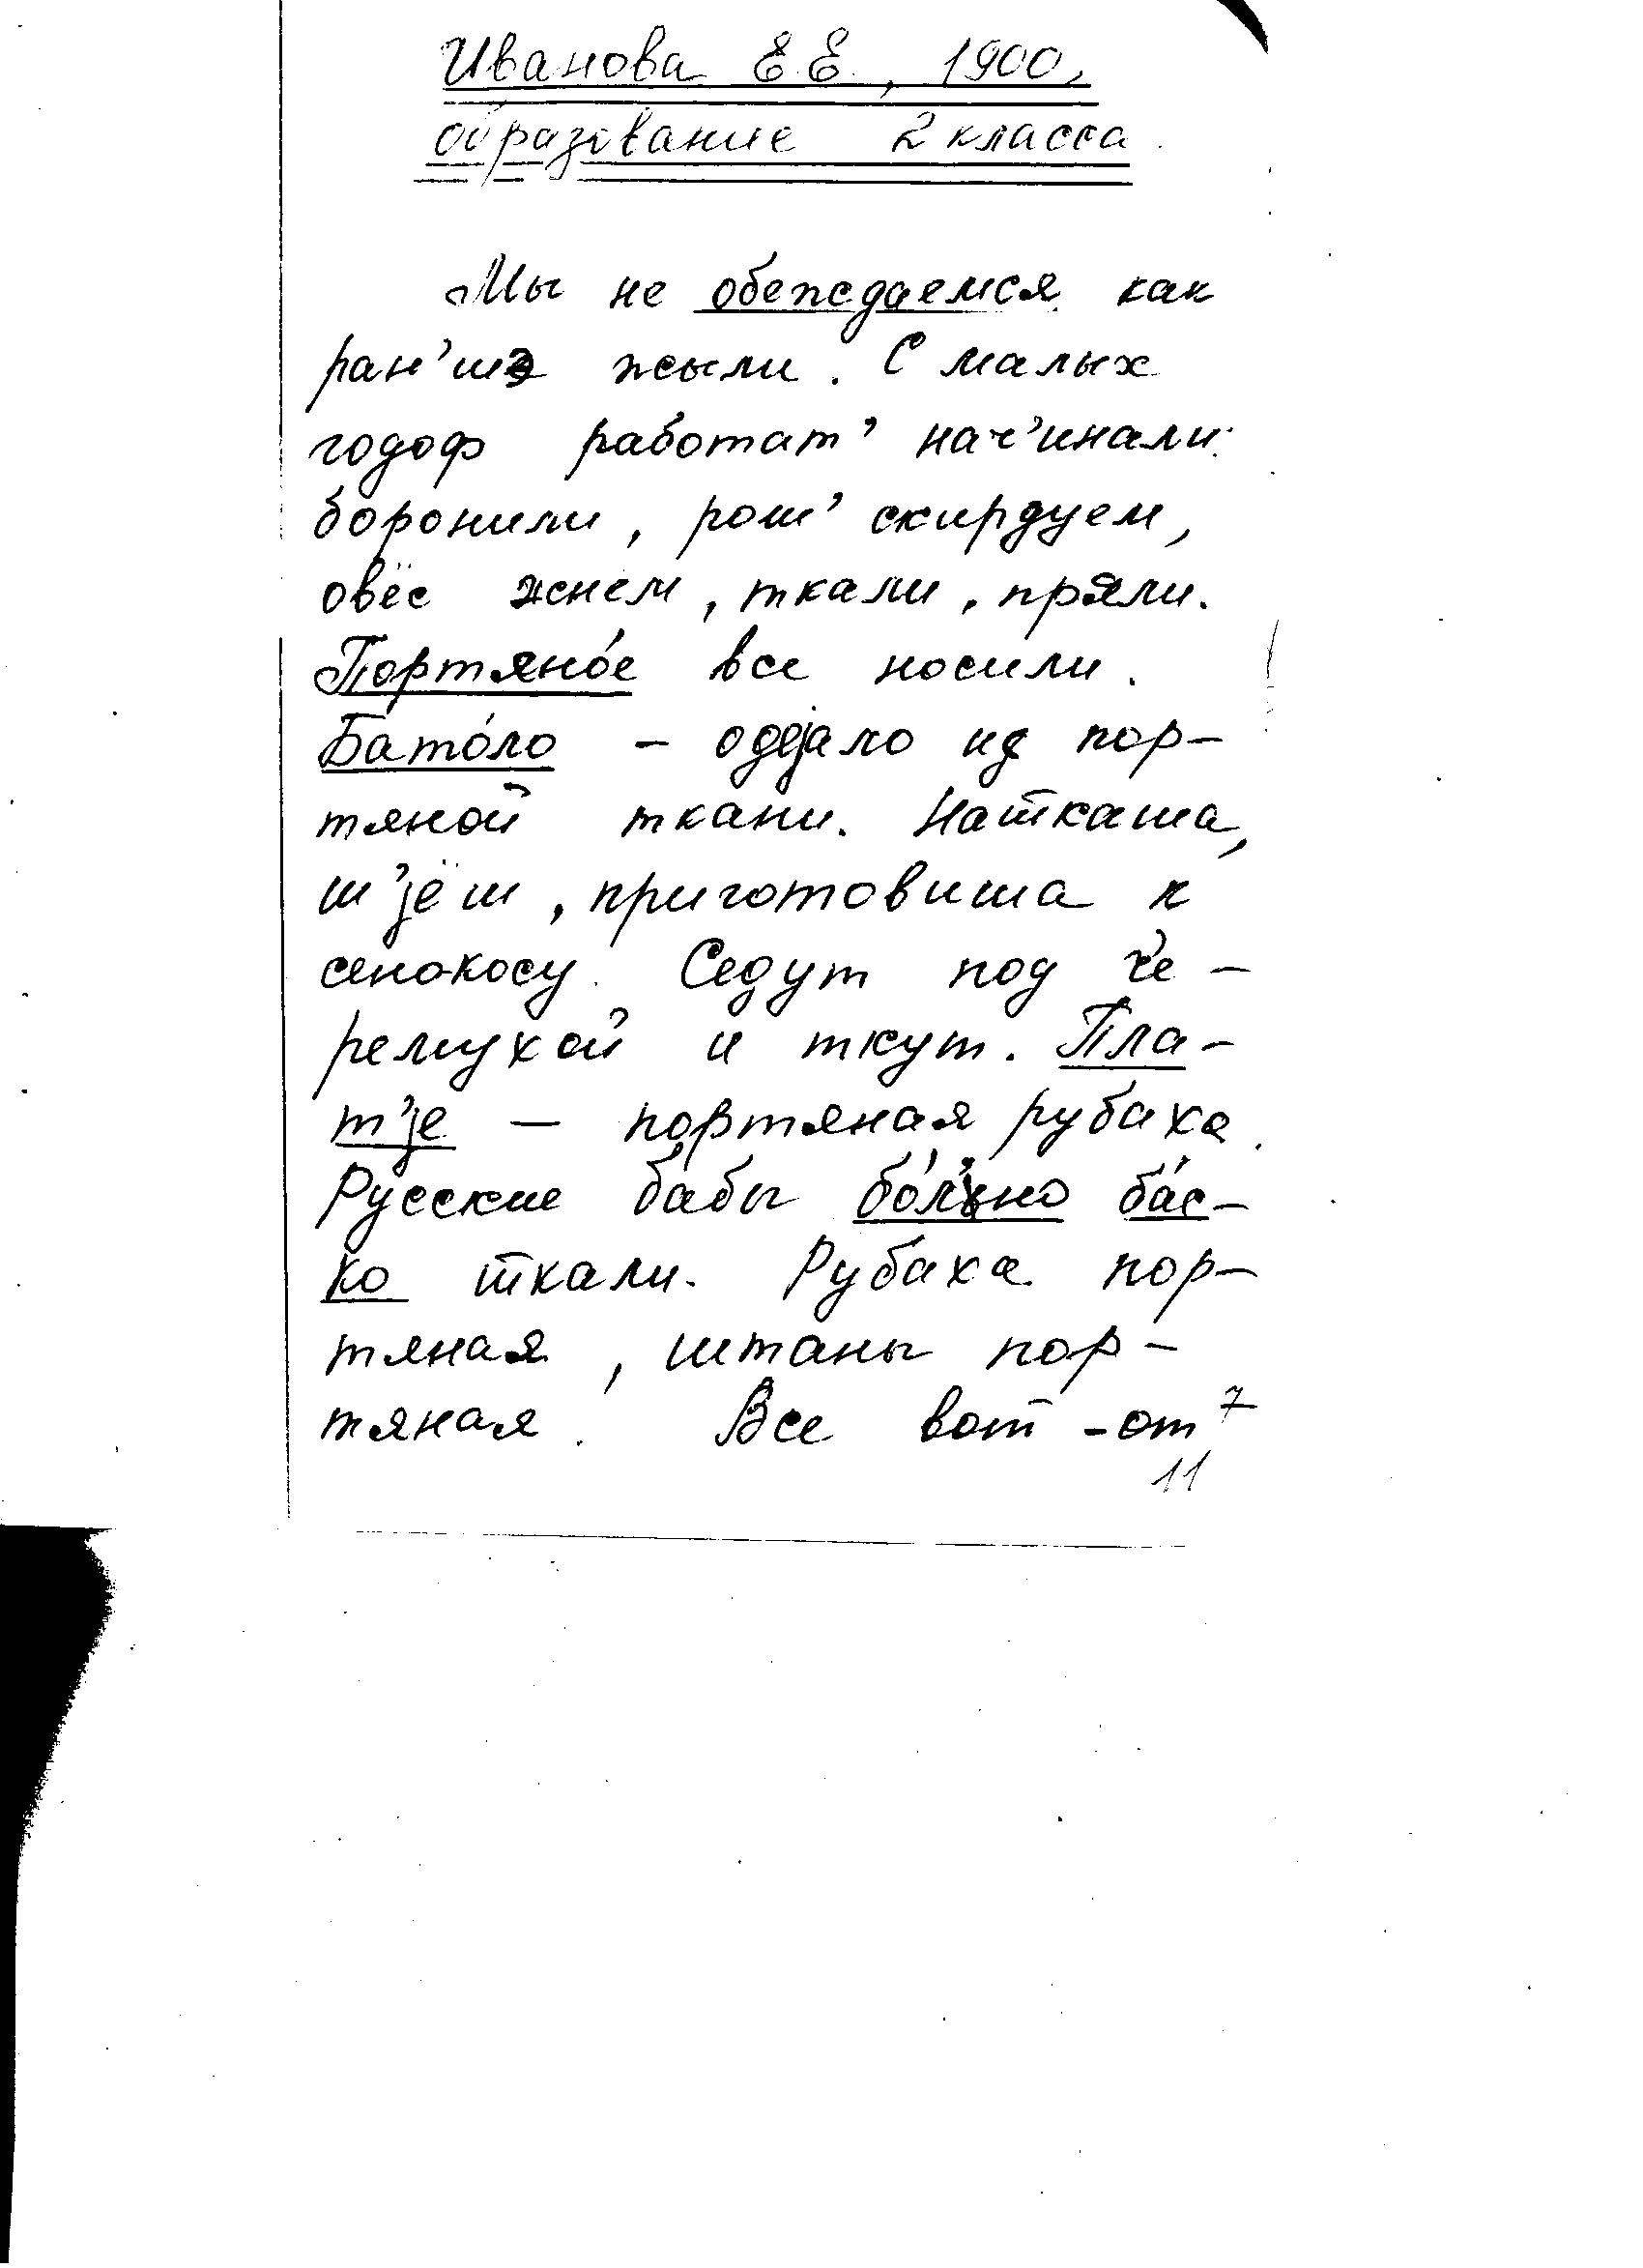 Иванова Е.Е., 1900,
образование 2 класса.
Мы не обеждаемся как
ран'шэ жыли. С малых
годоф работат' нач'инали:
боронили, рош' скирдуем,
овёс жнём, ткали, пряли.
Портяно́е все носили.
Бато́ло – одеjало из пор–
тяной ткани. Наткаша,
ш'jёш, приготовиша к
сенокосу. Седут под че–
ремухой и ткут. Пла–
т'jе – портяная рубаха.
Русские бабы бо́л'но ба́с–
ко ткали. Рубаха пор–
тяная, штаны пор–
тяная. Все вот -от
7
11